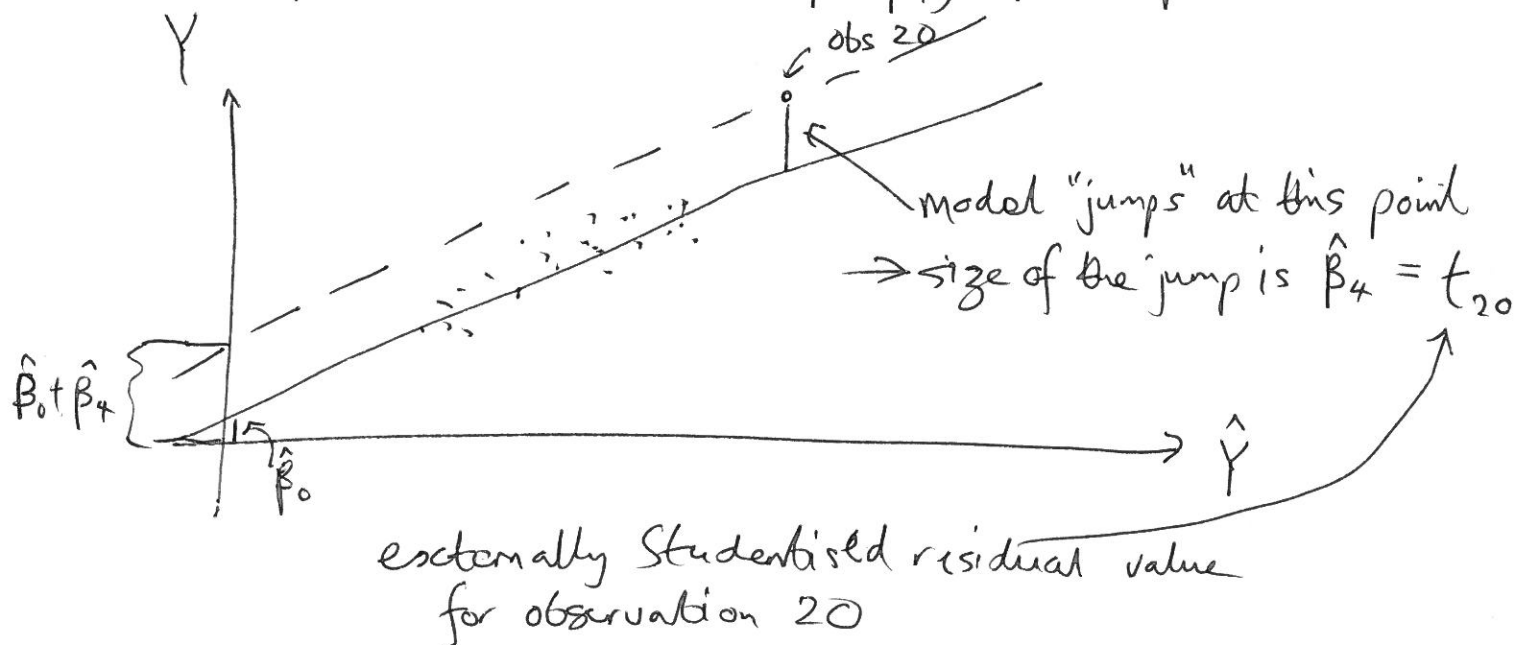 Y
obs 20
model "jumps" at this point
→ size of the jump is β̂₄ = t₂₀
β̂₀ + β̂₄
β̂₀
Ŷ
externally Studentised residual value
for observation 20